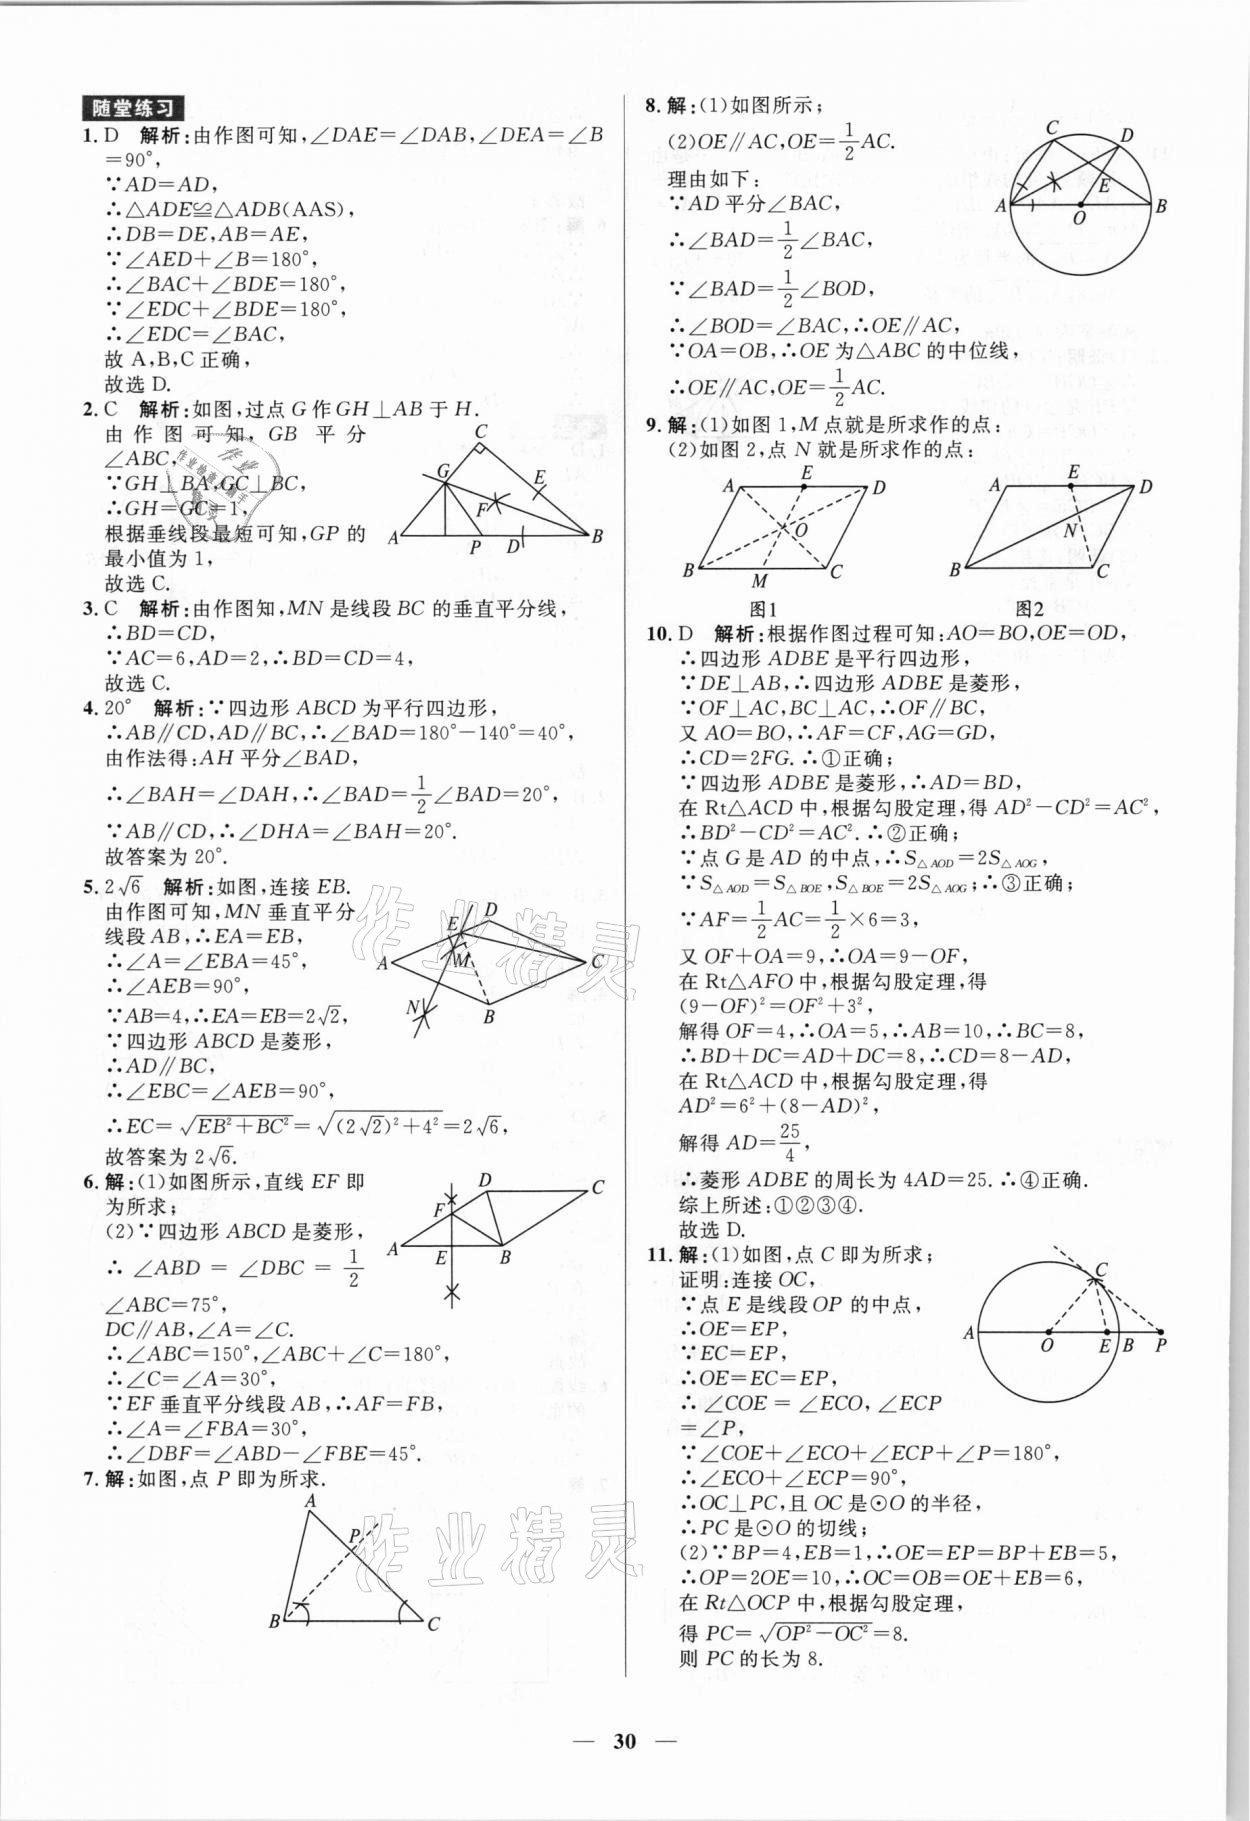 随堂练习
1. D 解析:由作图可知,∠DAE=∠DAB,∠DEA=∠B
=90°,
∵AD=AD,
∴△ADE≌△ADB(AAS),
∴DB=DE,AB=AE,
∵∠AED+∠B=180°,
∴∠BAC+∠BDE=180°,
∵∠EDC+∠BDE=180°,
∴∠EDC=∠BAC,
故 A,B,C 正确,
故选 D.
2. C 解析:如图,过点 G 作 GH⊥AB 于 H.
由作图可知,GB 平分
∠ABC,
∵GH⊥BA,GC⊥BC,
∴GH=GC=1,
根据垂线段最短可知,GP 的
最小值为 1,
故选 C.
C
G
E
F
A
P
D
B
3. C 解析:由作图知,MN 是线段 BC 的垂直平分线,
∴BD=CD,
∵AC=6,AD=2,∴BD=CD=4,
故选 C.
4. 20° 解析:∵四边形 ABCD 为平行四边形,
∴AB∥CD,AD∥BC,∴∠BAD=180°-140°=40°,
由作法得:AH 平分∠BAD,
∴∠BAH=∠DAH,∴∠BAD=1/2∠BAD=20°,
∵AB∥CD,∴∠DHA=∠BAH=20°.
故答案为 20°.
5. 2√6 解析:如图,连接 EB.
由作图可知,MN 垂直平分
线段 AB,∴EA=EB,
∴∠A=∠EBA=45°,
∴∠AEB=90°,
∵AB=4,∴EA=EB=2√2,
∵四边形 ABCD 是菱形,
∴AD∥BC,
∴∠EBC=∠AEB=90°,
∴EC=√(EB²+BC²)=√((2√2)²+4²)=2√6,
故答案为 2√6.
D
E
A
M
C
N
B
6. 解:(1)如图所示,直线 EF 即
为所求;
(2)∵四边形 ABCD 是菱形,
∴∠ABD=∠DBC=1/2
∠ABC=75°,
DC∥AB,∠A=∠C.
∴∠ABC=150°,∠ABC+∠C=180°,
∴∠C=∠A=30°,
∵EF 垂直平分线段 AB,∴AF=FB,
∴∠A=∠FBA=30°,
∴∠DBF=∠ABD-∠FBE=45°.
D
C
F
A
E
B
7. 解:如图,点 P 即为所求.
A
P
B
C
8. 解:(1)如图所示;
(2)OE∥AC,OE=1/2AC.
理由如下:
∵AD 平分∠BAC,
∴∠BAD=1/2∠BAC,
∵∠BAD=1/2∠BOD,
∴∠BOD=∠BAC,∴OE∥AC,
∵OA=OB,∴OE 为△ABC 的中位线,
∴OE∥AC,OE=1/2AC.
C
D
E
A
O
B
9. 解:(1)如图 1,M 点就是所求作的点:
(2)如图 2,点 N 就是所求作的点:
A
E
D
O
B
M
C
图1
A
E
D
N
B
C
图2
10. D 解析:根据作图过程可知:AO=BO,OE=OD,
∴四边形 ADBE 是平行四边形,
∵DE⊥AB,∴四边形 ADBE 是菱形,
∵OF⊥AC,BC⊥AC,∴OF∥BC,
又 AO=BO,∴AF=CF,AG=GD,
∴CD=2FG.∴①正确;
∵四边形 ADBE 是菱形,∴AD=BD,
在 Rt△ACD 中,根据勾股定理,得 AD²-CD²=AC²,
∴BD²-CD²=AC².∴②正确;
∵点 G 是 AD 的中点,∴S△AOD=2S△AOG,
∵S△AOD=S△BOE,S△BOE=2S△AOG;∴③正确;
∵AF=1/2AC=1/2×6=3,
又 OF+OA=9,∴OA=9-OF,
在 Rt△AFO 中,根据勾股定理,得
(9-OF)²=OF²+3²,
解得 OF=4,∴OA=5,∴AB=10,∴BC=8,
∴BD+DC=AD+DC=8,∴CD=8-AD,
在 Rt△ACD 中,根据勾股定理,得
AD²=6²+(8-AD)²,
解得 AD=25/4,
∴菱形 ADBE 的周长为 4AD=25.∴④正确.
综上所述:①②③④.
故选 D.
11. 解:(1)如图,点 C 即为所求;
证明:连接 OC,
∵点 E 是线段 OP 的中点,
∴OE=EP,
∵EC=EP,
∴OE=EC=EP,
∴∠COE=∠ECO,∠ECP
=∠P,
∵∠COE+∠ECO+∠ECP+∠P=180°,
∴∠ECO+∠ECP=90°,
∴OC⊥PC,且 OC 是⊙O 的半径,
∴PC 是⊙O 的切线;
(2)∵BP=4,EB=1,∴OE=EP=BP+EB=5,
∴OP=2OE=10,∴OC=OB=OE+EB=6,
在 Rt△OCP 中,根据勾股定理,
得 PC=√(OP²-OC²)=8.
则 PC 的长为 8.
C
A
O
E
B
P
作业精灵
作业精灵
— 30 —